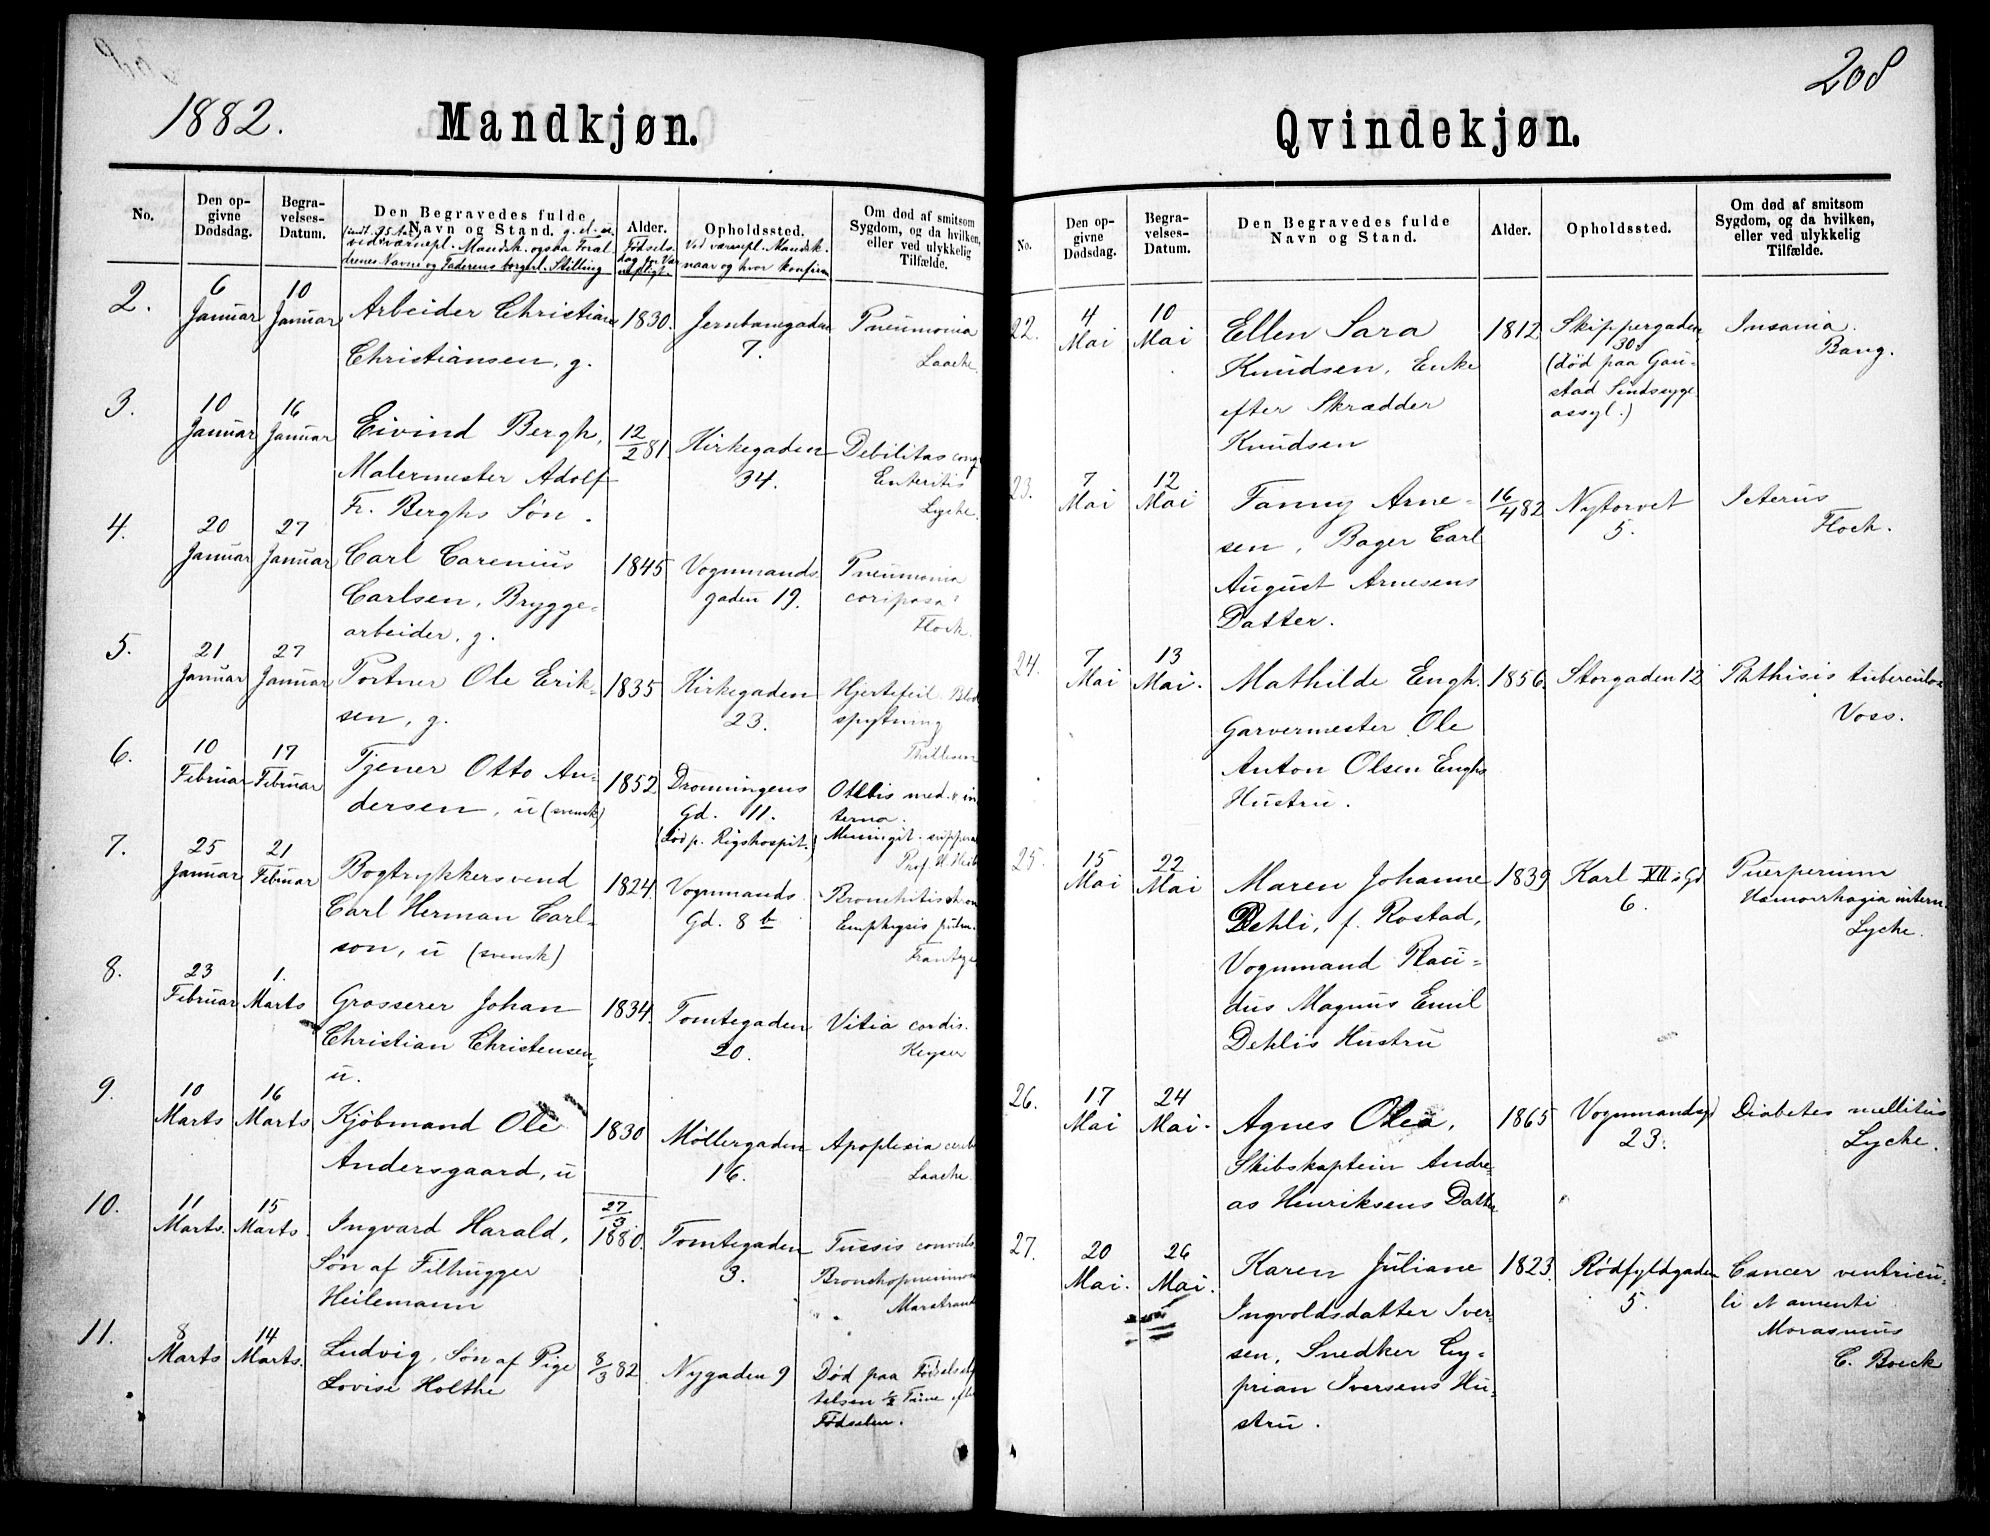 1882.
Mandkjøn.
No.
Den op-
givne
Dødsdag.
Begra-
velses-
Datum.
Den Begravedes fulde
Navn og Stand.
Alder.
Opholdssted.
Om død af smitsom
Sygdom, og da hvilken,
eller ved ulykkelig
Tilfælde.
2.
6
Januar
10
Januar
Arbeider Christian
Christiansen, g.
1830.
Jernbanegaden
7.
Pneumonia
Laache
3.
10
Januar
16
Januar
Eivind Bergh,
Malermester Adolf
Fr. Berghs Søn.
12/2 81
Kirkegaden
34.
Debilitas cong
Enteritis
Lyche.
4.
20
Januar
27
Januar
Carl Carenius
Carlsen, Brygge-
arbeider, g.
1845
Vognmands
gaden 19.
Pneumonia
Floch.
5.
21
Januar
27
Januar
Portner Ole Erik-
sen, g.
1835
Kirkegaden
23.
Hjertefeil. Blod
spytning
6.
10
Februar
17
Februar
Tjener Otto An-
dersen, u (svensk)
1852
Dronningens
Gd. 11.
(død p. Rigshospit.)
Otitis med. & in
terna.
Meningit. suppura
7.
25
Januar
21
Februar
Bogtrykkersvend
Carl Herman Carl-
son, u (svensk)
1824.
Vognmands
Gd. 8 b
Bronchitis chron
Emphysis pulm.
8.
23
Februar
1.
Marts
Grosserer Johan
Christian Christensen,
u.
1834.
Tomtegaden
20.
Vitia cordis.
Keyser
9.
10
Marts
16
Marts
Kjøbmand Ole
Andersgaard, u
1830
Møllergaden
16.
Apoplexia cereb
Laache
10.
11
Marts.
15
Marts.
Ingvard Harald,
Søn af Filhugger
Heilemann
27/3
1880.
Tomtegaden
3.
Tussis convuls.
Bronchopneumon
Marstrand
11.
8
Marts
14
Marts.
Ludvig, Søn af Pige
Lovise Holthe
8/3 82
Nygaden 9
Død paa Fødselsstif
telsen ½ Time efter
Fødselen.
208
Qvindekjøn.
No.
Den op-
givne
Dødsdag.
Begra-
velses-
Datum.
Den Begravedes fulde
Navn og Stand.
Alder.
Opholdssted.
Om død af smitsom
Sygdom, og da hvilken,
eller ved ulykkelig
Tilfælde.
22.
4
Mai
10
Mai
Ellen Sara
Knudsen, Enke
efter Skrædder
Knudsen
1812
Skippergaden
30.
(død paa Gau-
stad Sindssyge
assyl.)
Insania.
Bang.
23.
7
Mai
12
Mai
Fanny Arne-
sen, Bager Carl
August Arnesens
Datter.
16/4 82
Nytorvet
5.
Icterus
Floch.
24.
7
Mai
13
Mai.
Mathilde Engh.
Garvermester Ole
Anton Olsen Enghs
Hustru.
1856.
Storgaden 12
Phthisis tuberculosa
Voss.
25.
15
Mai
22
Mai
Maren Johanne
Dehli, f. Rostad,
Vognmand Placi-
dus Magnus Emil
Dehlis Hustru
1839
Karl XII s Gd
6.
Puerperium
Hæmorrhagia intern.
Lyche.
26.
17
Mai
24
Mai.
Agnes Olea,
Skibskaptein Andre-
as Henriksens Datter
1865
Vognmandsg
23.
Diabetes mellitus
Lyche.
27.
20
Mai.
26
Mai.
Karen Juliane
Ingvoldsdatter Iver-
sen, Snedker Cy-
prian Iversens Hu-
stru.
1823.
Rødfyldgaden
5.
Cancer ventricu-
li et omenti
Marasmus
C. Boeck